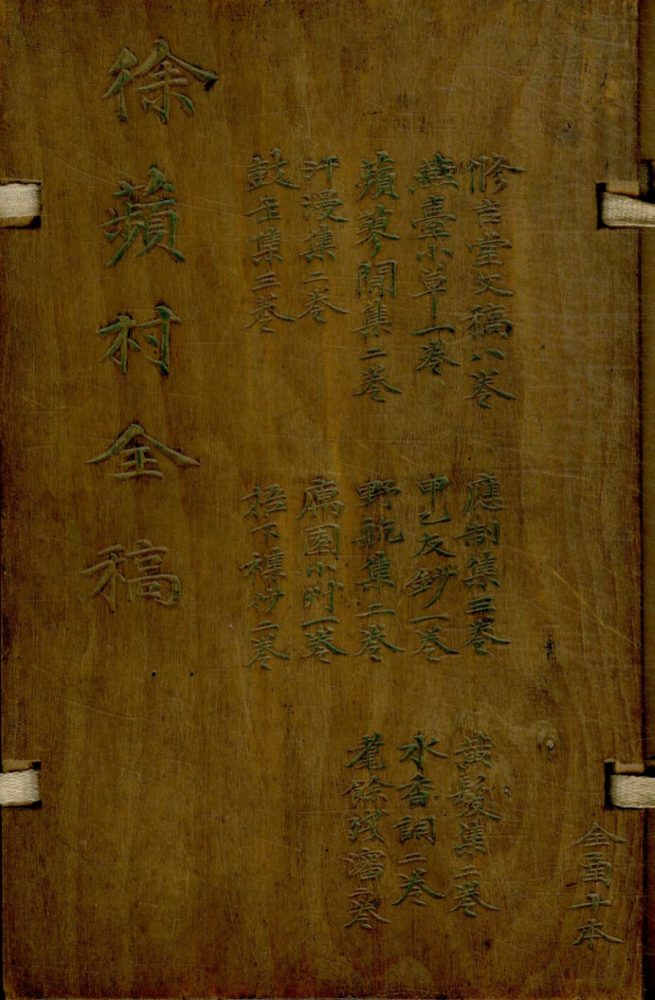 脩吉堂文稿八卷
燕臺小草一卷
蘋蓼閒集二卷
汗漫集二卷
鼓缶集三卷
應制集三卷
甲乙友鈔一卷
野航集二卷
寓園小草一卷
梧下襍抄二卷
黃髮集二卷
水香詞二卷
耄餘殘瀋二卷
徐蘋村全稿